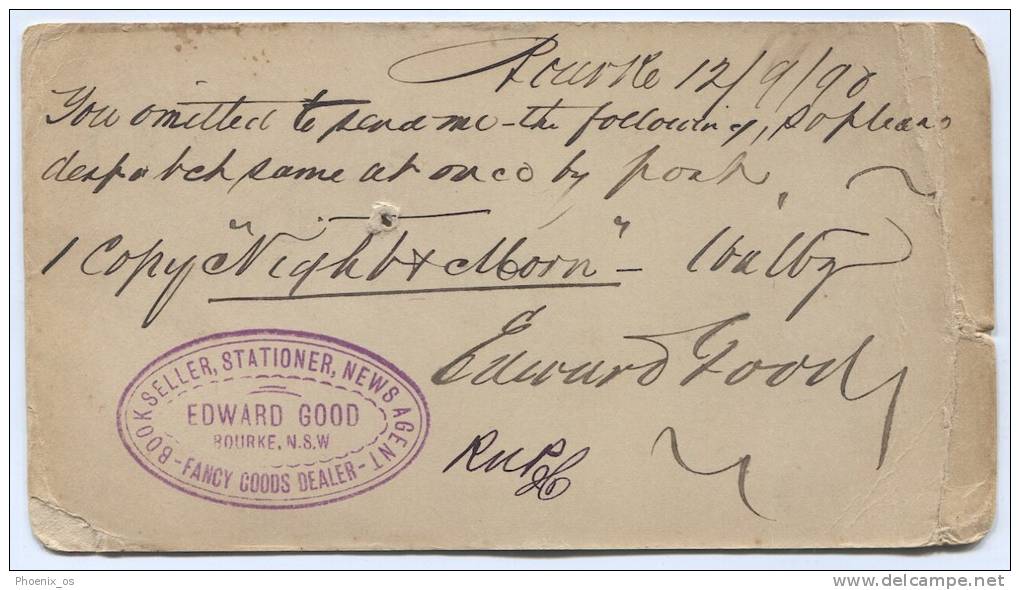 Bourke 12/9/90
You omitted to send me - the following, so please
despatch same at once by post
1 Copy "Night & Morn" -
Edward Good
BOOKSELLER, STATIONER, NEWS AGENT
EDWARD GOOD
BOURKE, N.S.W
- FANCY GOODS DEALER -
Phoenix_os
delcampe.net